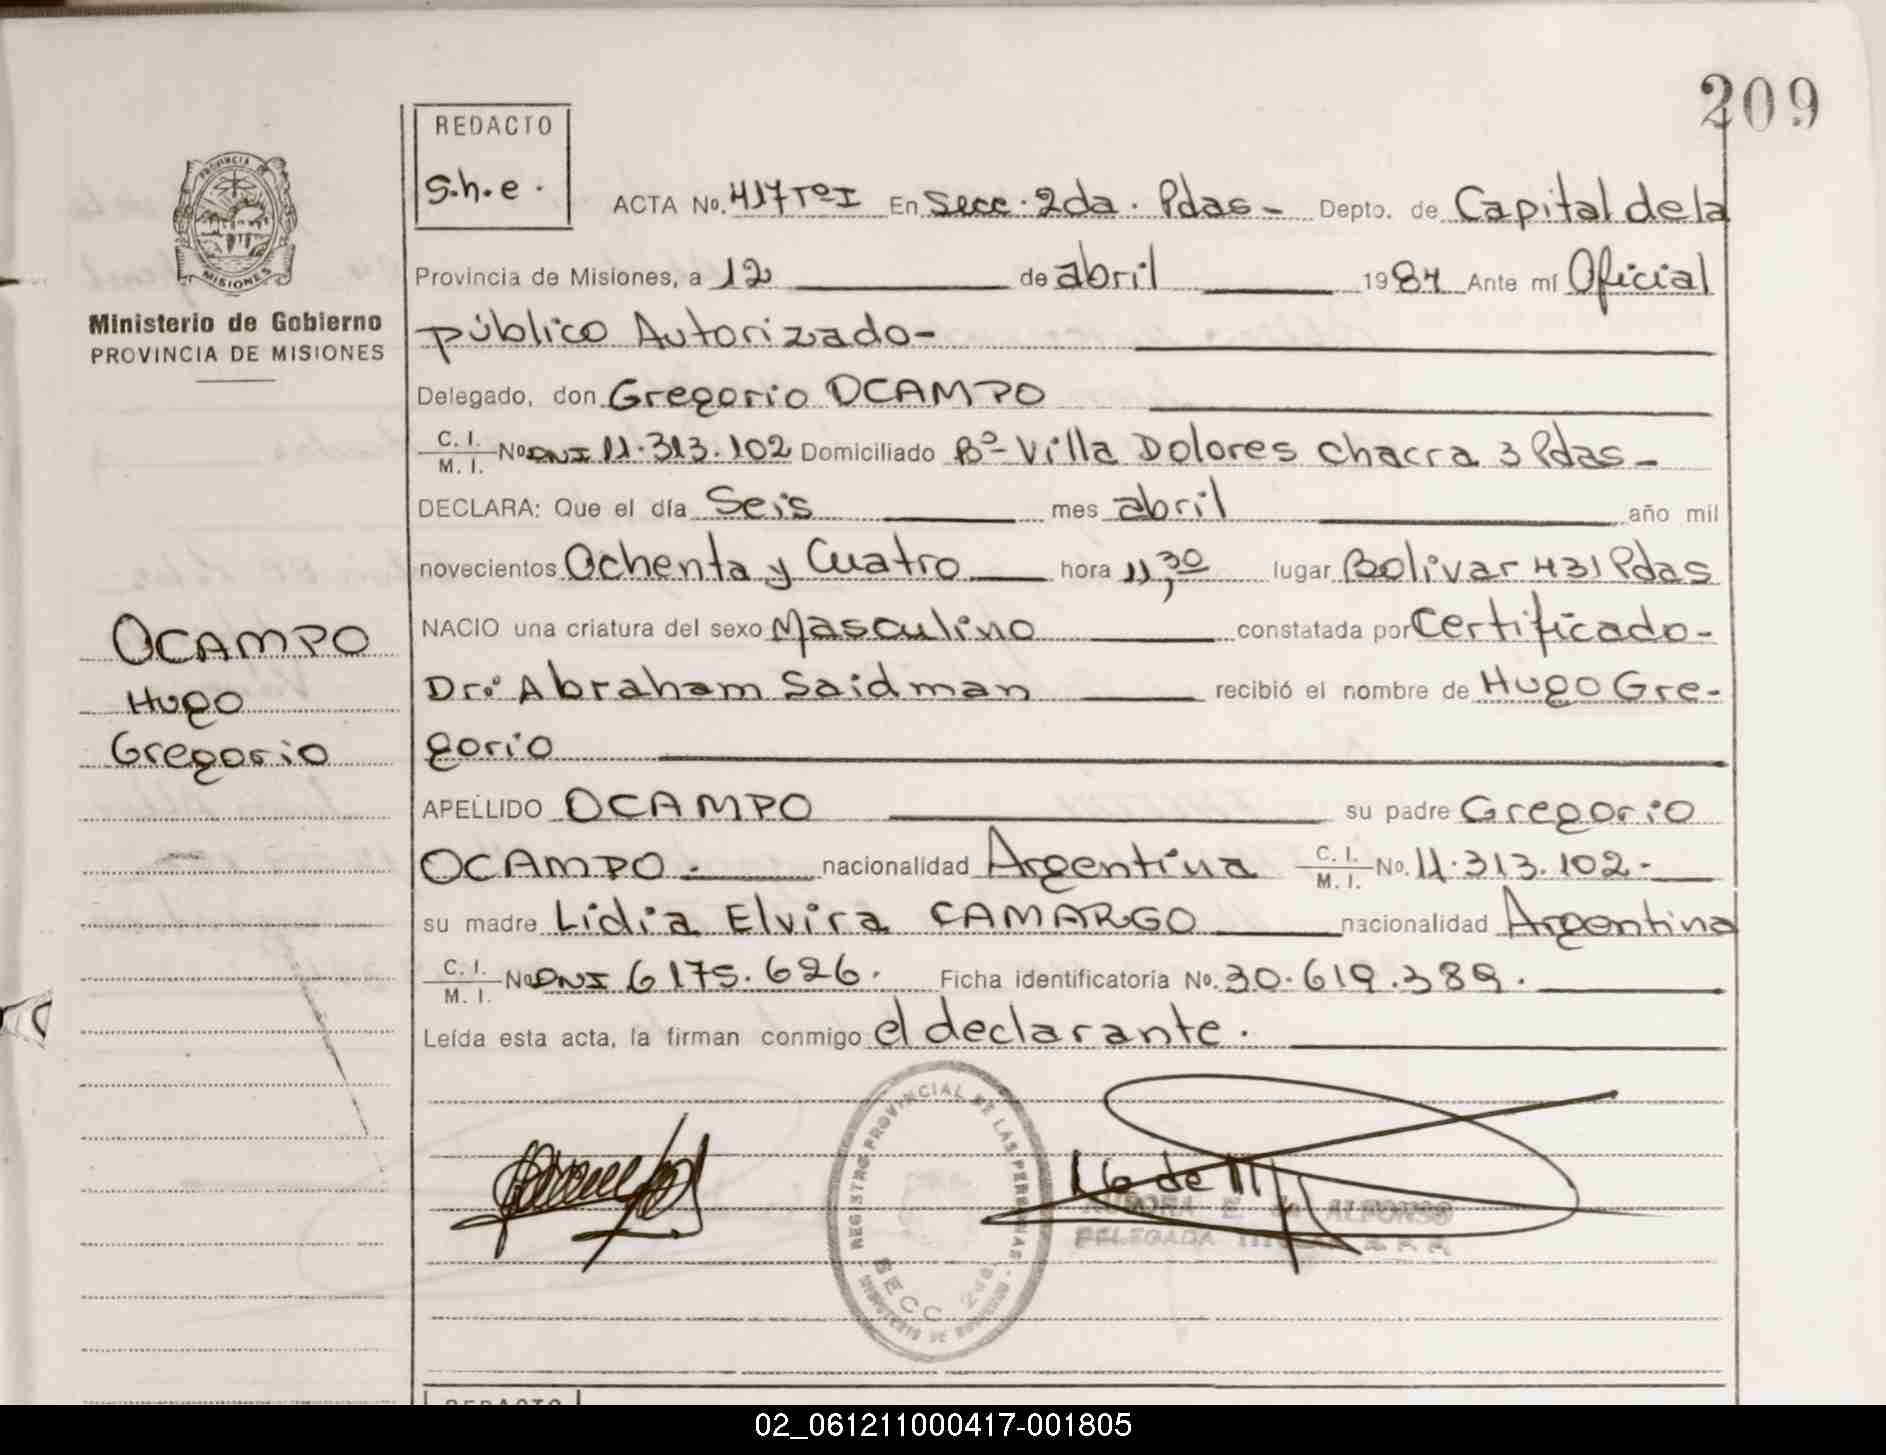 209
REDACTO
S.h.e.
ACTA No. 417 TºI En Secc. 2da. Pdas - Depto. de Capital de la
PROVINCIA DE MISIONES
Provincia de Misiones, a 12 de abril 1984 Ante mí Oficial
Ministerio de Gobierno
PROVINCIA DE MISIONES
público Autorizado-
Delegado, don Gregorio OCAMPO
C. I. M. I. No DNI 11.313.102 Domiciliado Bº- Villa Dolores chacra 3 Pdas-
DECLARA: Que el día Seis mes abril año mil
novecientos Ochenta y Cuatro hora 11,30 lugar Bolivar 431 Pdas
OCAMPO
Hugo
Gregorio
NACIO una criatura del sexo Masculino constatada por Certificado-
Dr. Abraham Saidman recibió el nombre de Hugo Gre-
gorio
APELLIDO OCAMPO su padre Gregorio
OCAMPO. nacionalidad Argentina C. I. M. I. No. 11.313.102-
su madre Lidia Elvira CAMARGO nacionalidad Argentina
C. I. M. I. No DNI 6175.626. Ficha identificatoria No. 30.619.389.
Leída esta acta, la firman conmigo el declarante.
REGISTRO PROVINCIAL DE LAS PERSONAS
SECC 2da
MINISTERIO DE GOBIERNO
AURORA E. de ALFONSO
DELEGADA
REDACTO
02_061211000417-001805